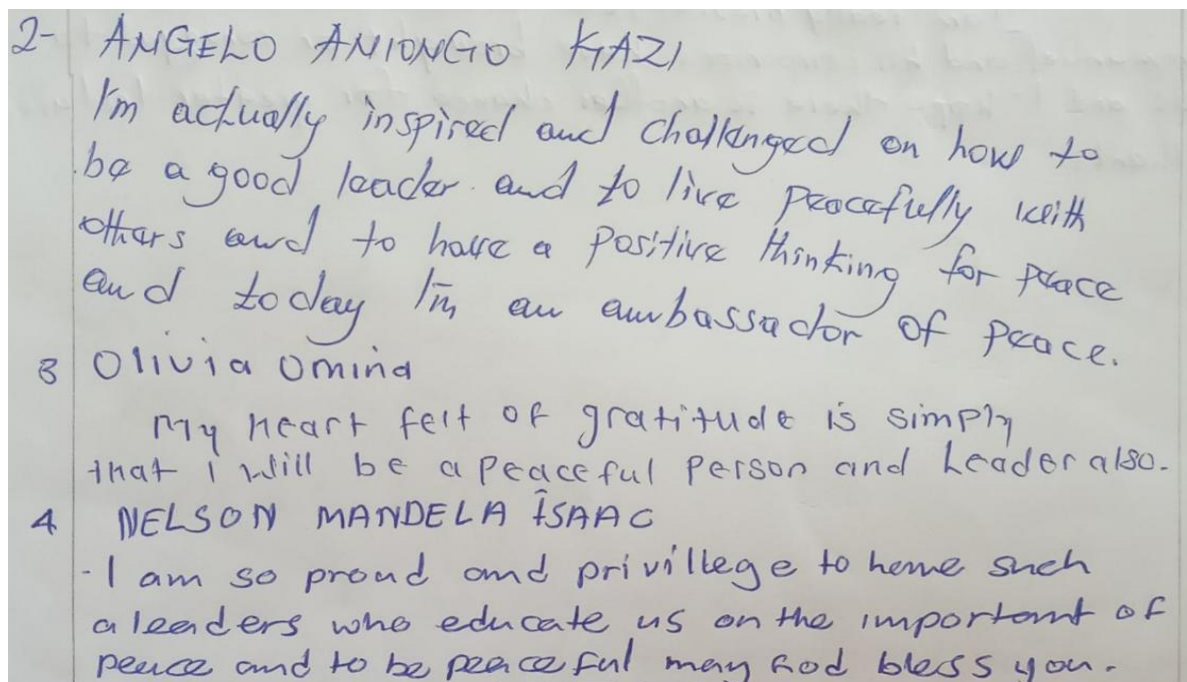 2- ANGELO ANIONGO KAZI
I'm actually inspired and challenged on how to
be a good leader. and to live peacefully with
others and to have a positive thinking for peace
and today I'm an ambassador of peace.
3 Olivia Omina
My heart felt of gratitude is simply
that i will be a peaceful person and Leader also.
4 NELSON MANDELA ISAAC
- I am so proud and privillege to have such
a leaders who educate us on the important of
peace and to be peaceful may God bless you.